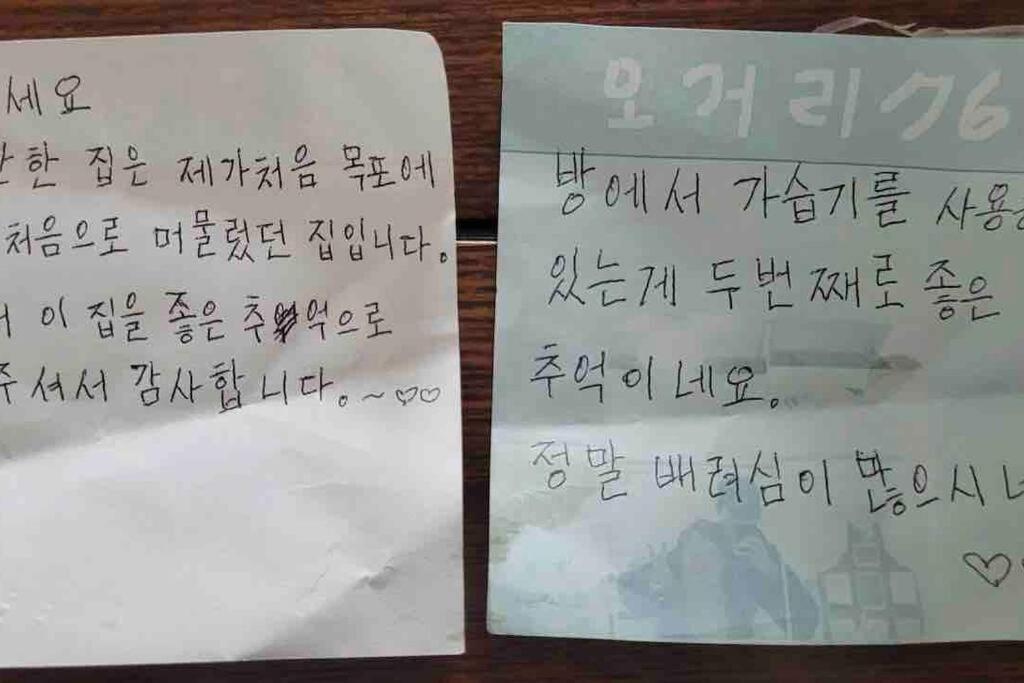 세요
한 집은 제가처음 목포에
처음으로 머물렀던 집입니다.
이 집을 좋은 추억으로
주셔서 감사합니다.~♡♡
오거리76
방에서 가습기를 사용
있는게 두번째로 좋은
추억이네요.
정말 배려심이 많으시네
♡